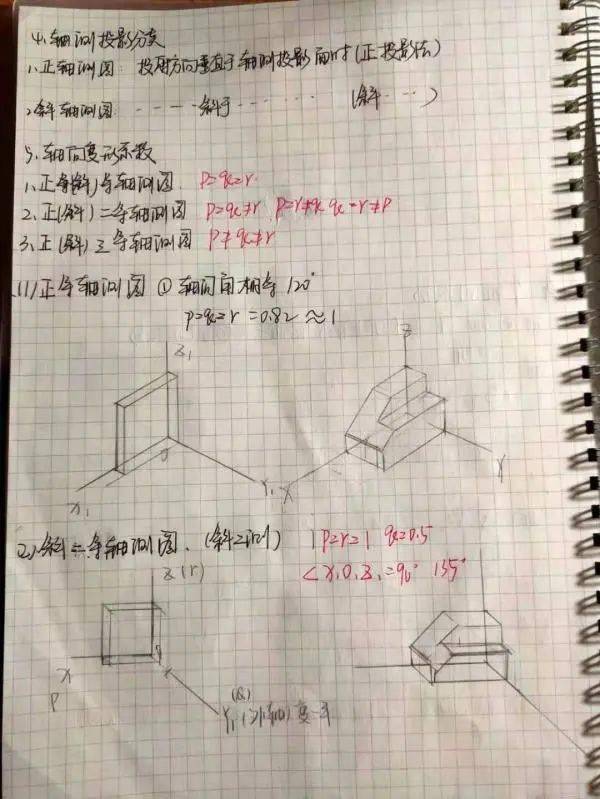 4. 轴测投影分类
1. 正轴测图: 投射方向垂直于轴测投影面时 (正投影法)
2. 斜轴测图 ······斜于······ (斜···)
5. 轴向变形系数
1. 正(斜)等轴测图 p=q=r
2. 正(斜)二等轴测图 p=q≠r p=r≠q q=r≠p
3. 正(斜)三等轴测图 p≠q≠r
(1) 正等轴测图 ① 轴间角相等 120°
p=q=r=0.82≈1
Z1
Z
O
X1
Y1
X
Y
(2) 斜二等轴测图. (斜二测) p=r=1 q=0.5
∠X1O1Z1=90° 135°
Z(r)
X
P
(q)
Y1